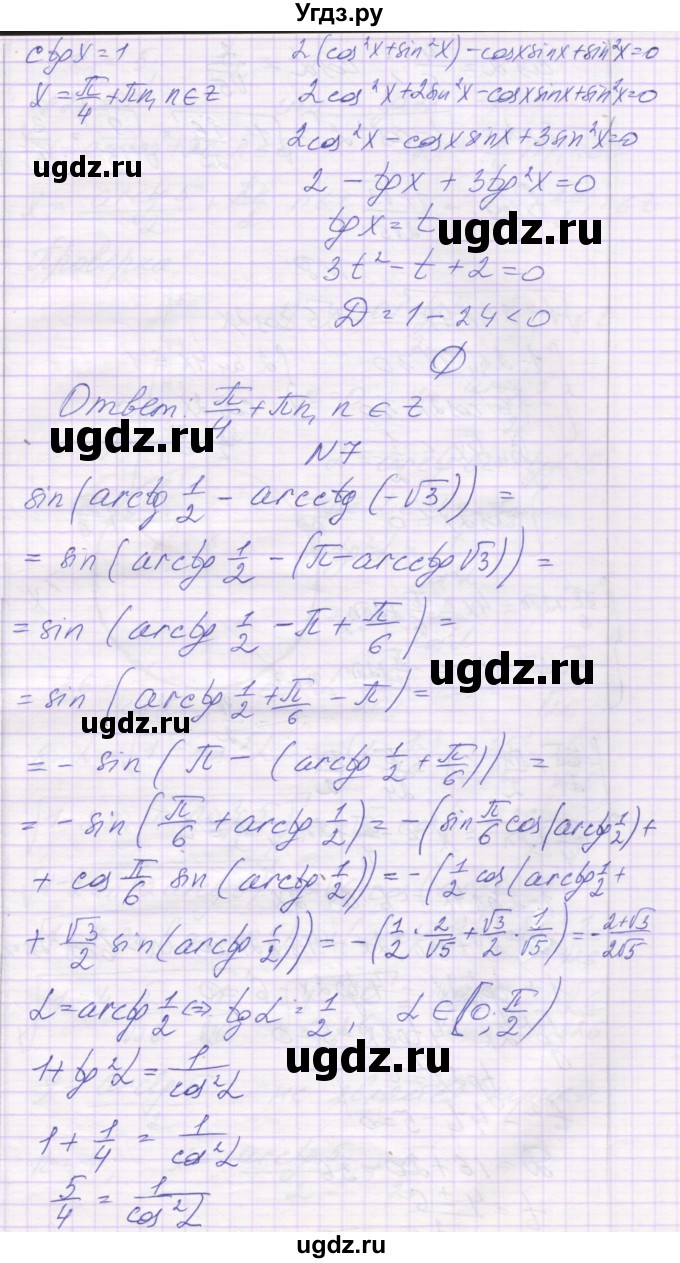 Угдз.ру
ctgx = 1
x = π/4 + πn, n ∈ z
2(cos²x + sin²x) - cosxsinx + sin²x = 0
2cos²x + 2sin²x - cosxsinx + sin²x = 0
2cos²x - cosx sinx + 3sin²x = 0
ugdz.ru
2 - tgx + 3tg²x = 0
tgx = t
ugdz.ru
3t² - t + 2 = 0
D = 1 - 24 < 0
∅
Ответ: π/4 + πn, n ∈ z
ugdz.ru
N7
sin(arctg 1/2 - arcctg(-√3)) =
= sin(arctg 1/2 - (π - arcctg√3)) =
= sin(arctg 1/2 - π + π/6) =
ugdz.ru
= sin(arctg 1/2 + π/6 - π) =
ugdz.ru
= - sin(π - (arctg 1/2 + π/6)) =
= - sin(π/6 + arctg 1/2) = -(sin π/6 cos(arctg 1/2) +
+ cos π/6 sin(arctg 1/2)) = -(1/2 cos(arctg 1/2 +
+ √3/2 sin(arctg 1/2)) = -(1/2 · 2/√5 + √3/2 · 1/√5) = - 2+√3/2√5
L = arctg 1/2 ⇔ tgL = 1/2, L ∈ [0; π/2)
1 + tg²L = 1/cos²L
ugdz.ru
1 + 1/4 = 1/cos²L
5/4 = 1/cos²L
ugdz.ru